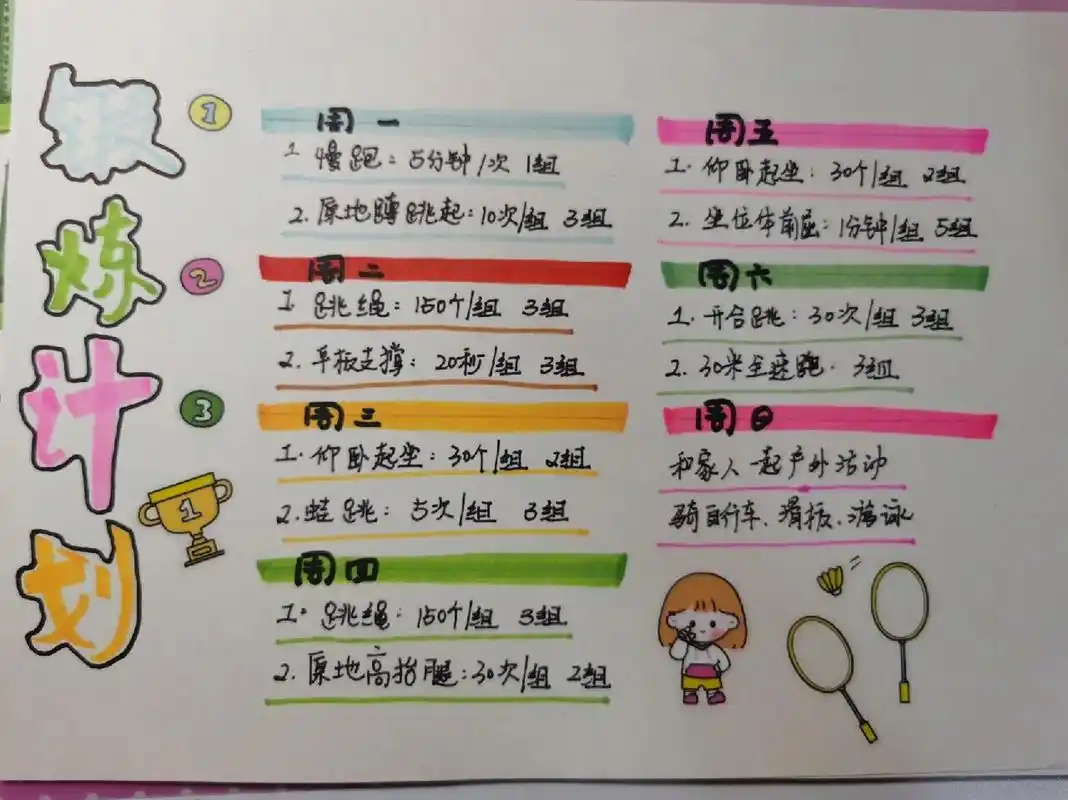 锻
炼
计
划
1
2
3
1
周一
1 慢跑：5分钟/次 1组
2. 原地蹲跳起：10次/组 3组
周二
1. 跳绳：150个/组 3组
2. 平板支撑：20秒/组 3组
周三
1. 仰卧起坐：30个/组 2组
2. 蛙跳：5次/组 3组
周四
1. 跳绳：150个/组 3组
2. 原地高抬腿：30次/组 2组
周五
1. 仰卧起坐：30个/组 2组
2. 坐位体前屈：1分钟/组 5组
周六
1. 开合跳：30次/组 3组
2. 30米全速跑. 3组
周日
和家人一起户外活动
骑自行车、滑板、游泳